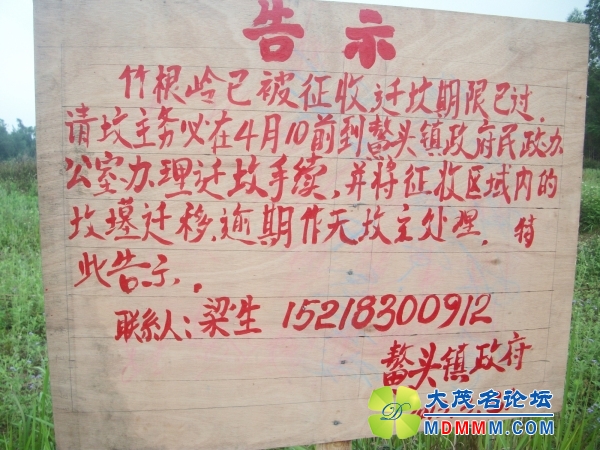 告示
竹根岭已被征收迁坟期限已过,
请坟主务必在4月10前到鳌头镇政府民政办
公室办理迁坟手续,并将征收区域内的
坟墓迁移,逾期作无坟主处理,特
此告示.
联系人:梁生 15218300912
鳌头镇政府
大茂名论坛
MDMMM.COM